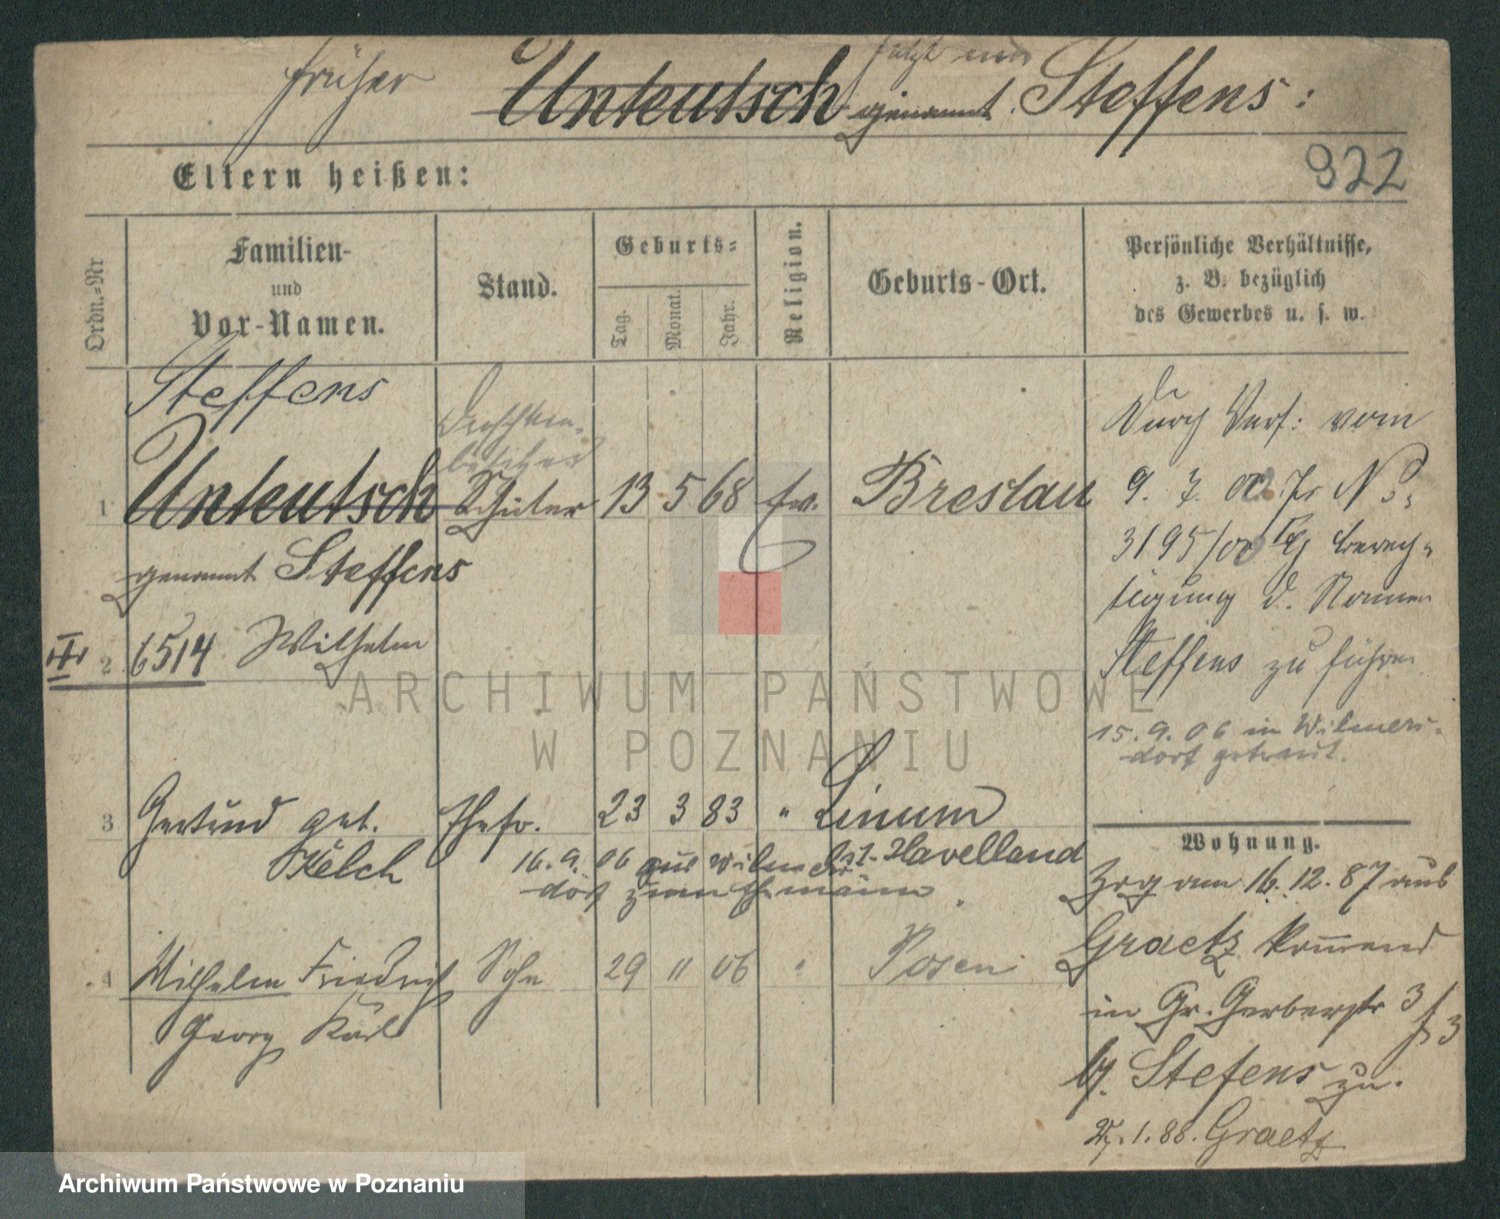 früher Unteutsch jetzt nur genannt Steffens:
Eltern heißen:
922
Ordn.-Nr
Familien-
und
Vor-Namen.
Stand.
Geburts-
Tag.
Monat.
Jahr.
Religion.
Geburts-Ort.
Persönliche Verhältnisse,
z. B. bezüglich
des Gewerbes u. s. w.
Steffens
1 Unteutsch Schüler 13 5 68 ev. Breslau
genannt Steffens
2 6514 Wilhelm
Durch Verf: vom
9. 7. 00 N
3195/00
d. Namen
Steffens zu führen
15.9.06 in Wilmers-
dorf getraut.
3 Gertrud geb. Ehefr. 23 3 83 " Linum
Kelch
Ost-Havelland
16.9.06 aus Wilmers-
dorf zum Ehemann
4 Wilhelm Friedrich Sohn 29 11 06 " Posen
Georg Karl
Wohnung.
Zog am 16.12.87 aus
Graetz kommend
in Gr. Gerberstr 3
b/ Stefens zu.
1.88. Graetz
ARCHIWUM PAŃSTWOWE
W POZNANIU
Archiwum Państwowe w Poznaniu